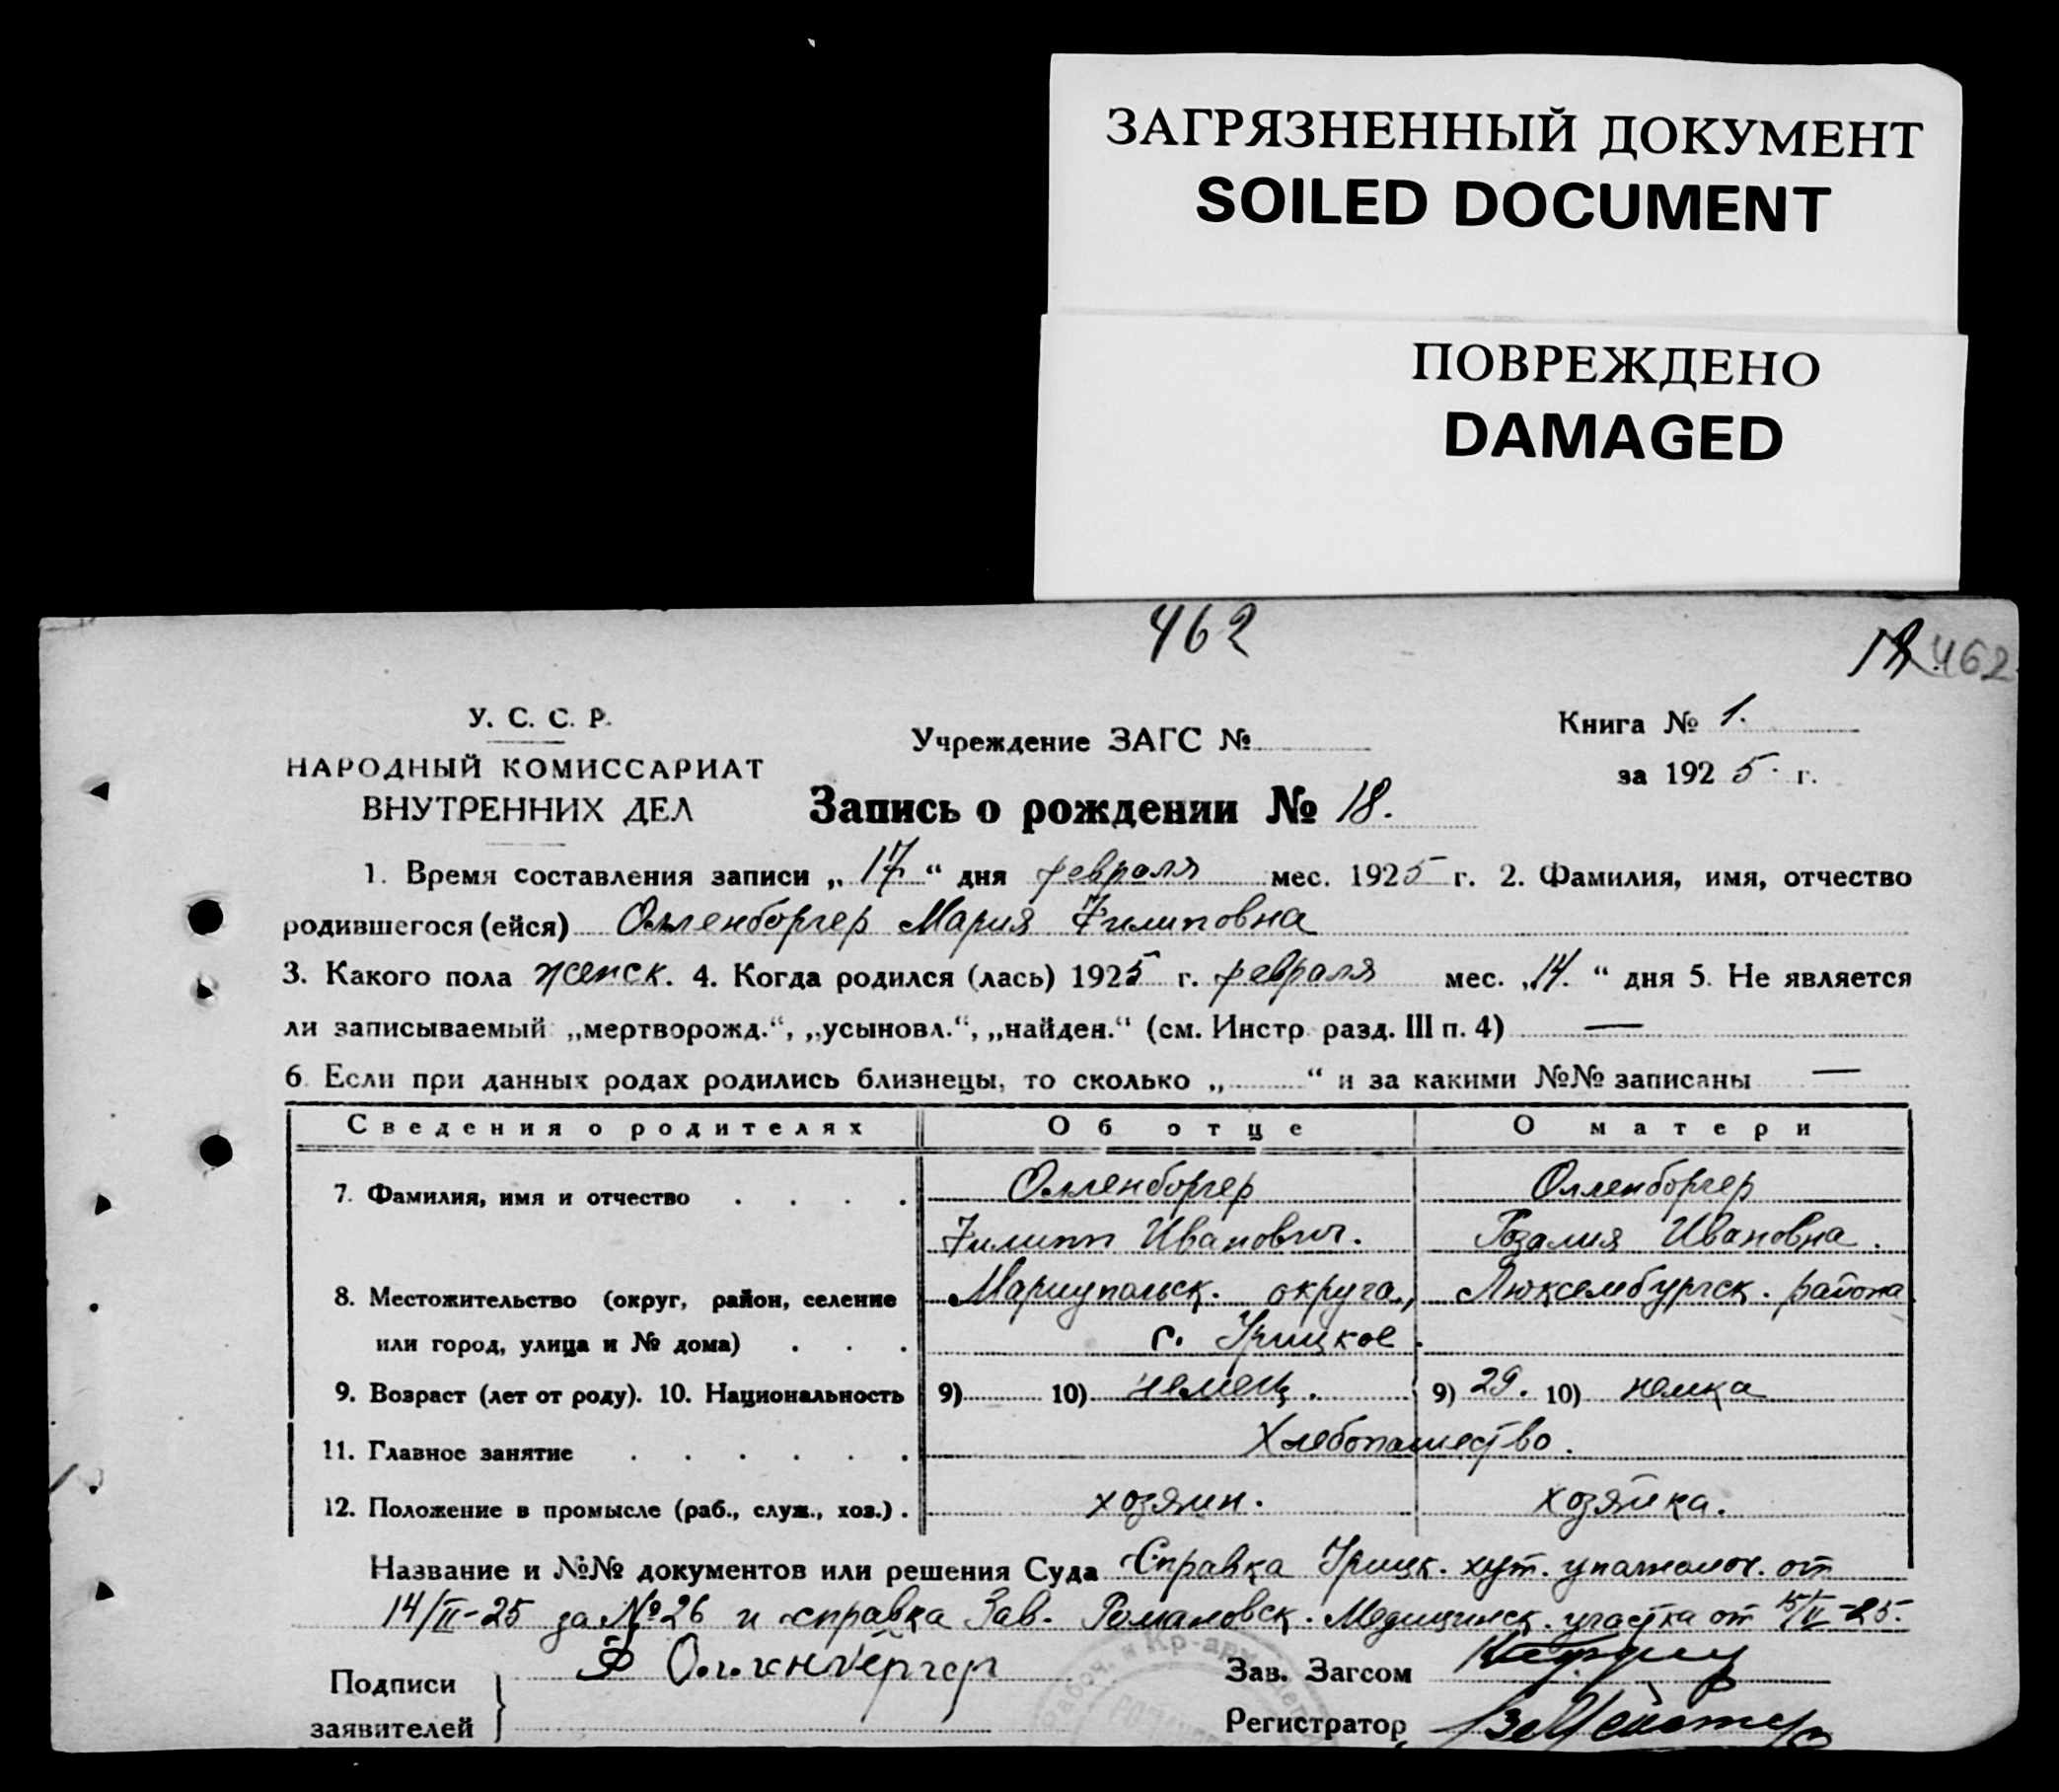 ЗАГРЯЗНЕННЫЙ ДОКУМЕНТ
SOILED DOCUMENT
ПОВРЕЖДЕНО
DAMAGED
462
462
У. С. С. Р.
НАРОДНЫЙ КОМИССАРИАТ
ВНУТРЕННИХ ДЕЛ
Учреждение ЗАГС №
Книга № 1.
за 1925 г.
Запись о рождении № 18.
1. Время составления записи „17“ дня февраля мес. 1925 г. 2. Фамилия, имя, отчество
родившегося (ейся) Олленборгер Мария Филиповна
3. Какого пола женск. 4. Когда родился (лась) 1925 г. февраля мес. „14.“ дня 5. Не является
ли записываемый „мертворожд.“, „усыновл.“, „найден.“ (см. Инстр. разд. III п. 4) —
6. Если при данных родах родились близнецы, то сколько „ “ и за какими №№ записаны —
Сведения о родителях Об отце О матери
7. Фамилия, имя и отчество . . . . Олленборгер Олленборгер
Филипп Иванович. Розалия Ивановна.
8. Местожительство (округ, район, селение Мариупольск. округа, Люксембургск. района
или город, улица и № дома) . . . с. Урицкое.
9. Возраст (лет от роду). 10. Национальность 9) 10) немец. 9) 29. 10) немка
11. Главное занятие . . . . . . Хлебопашество.
12. Положение в промысле (раб., служ., хоз.) . хозяин. хозяйка.
Название и №№ документов или решения Суда Справка Урицк. хут. уполномоч. от
14/II-25 за № 26 и справка Зав. Романовск. Медицинск. участка от 15/II-25.
Подписи
заявителей
Ф Олленбергер
Зав. Загсом
Регистратор